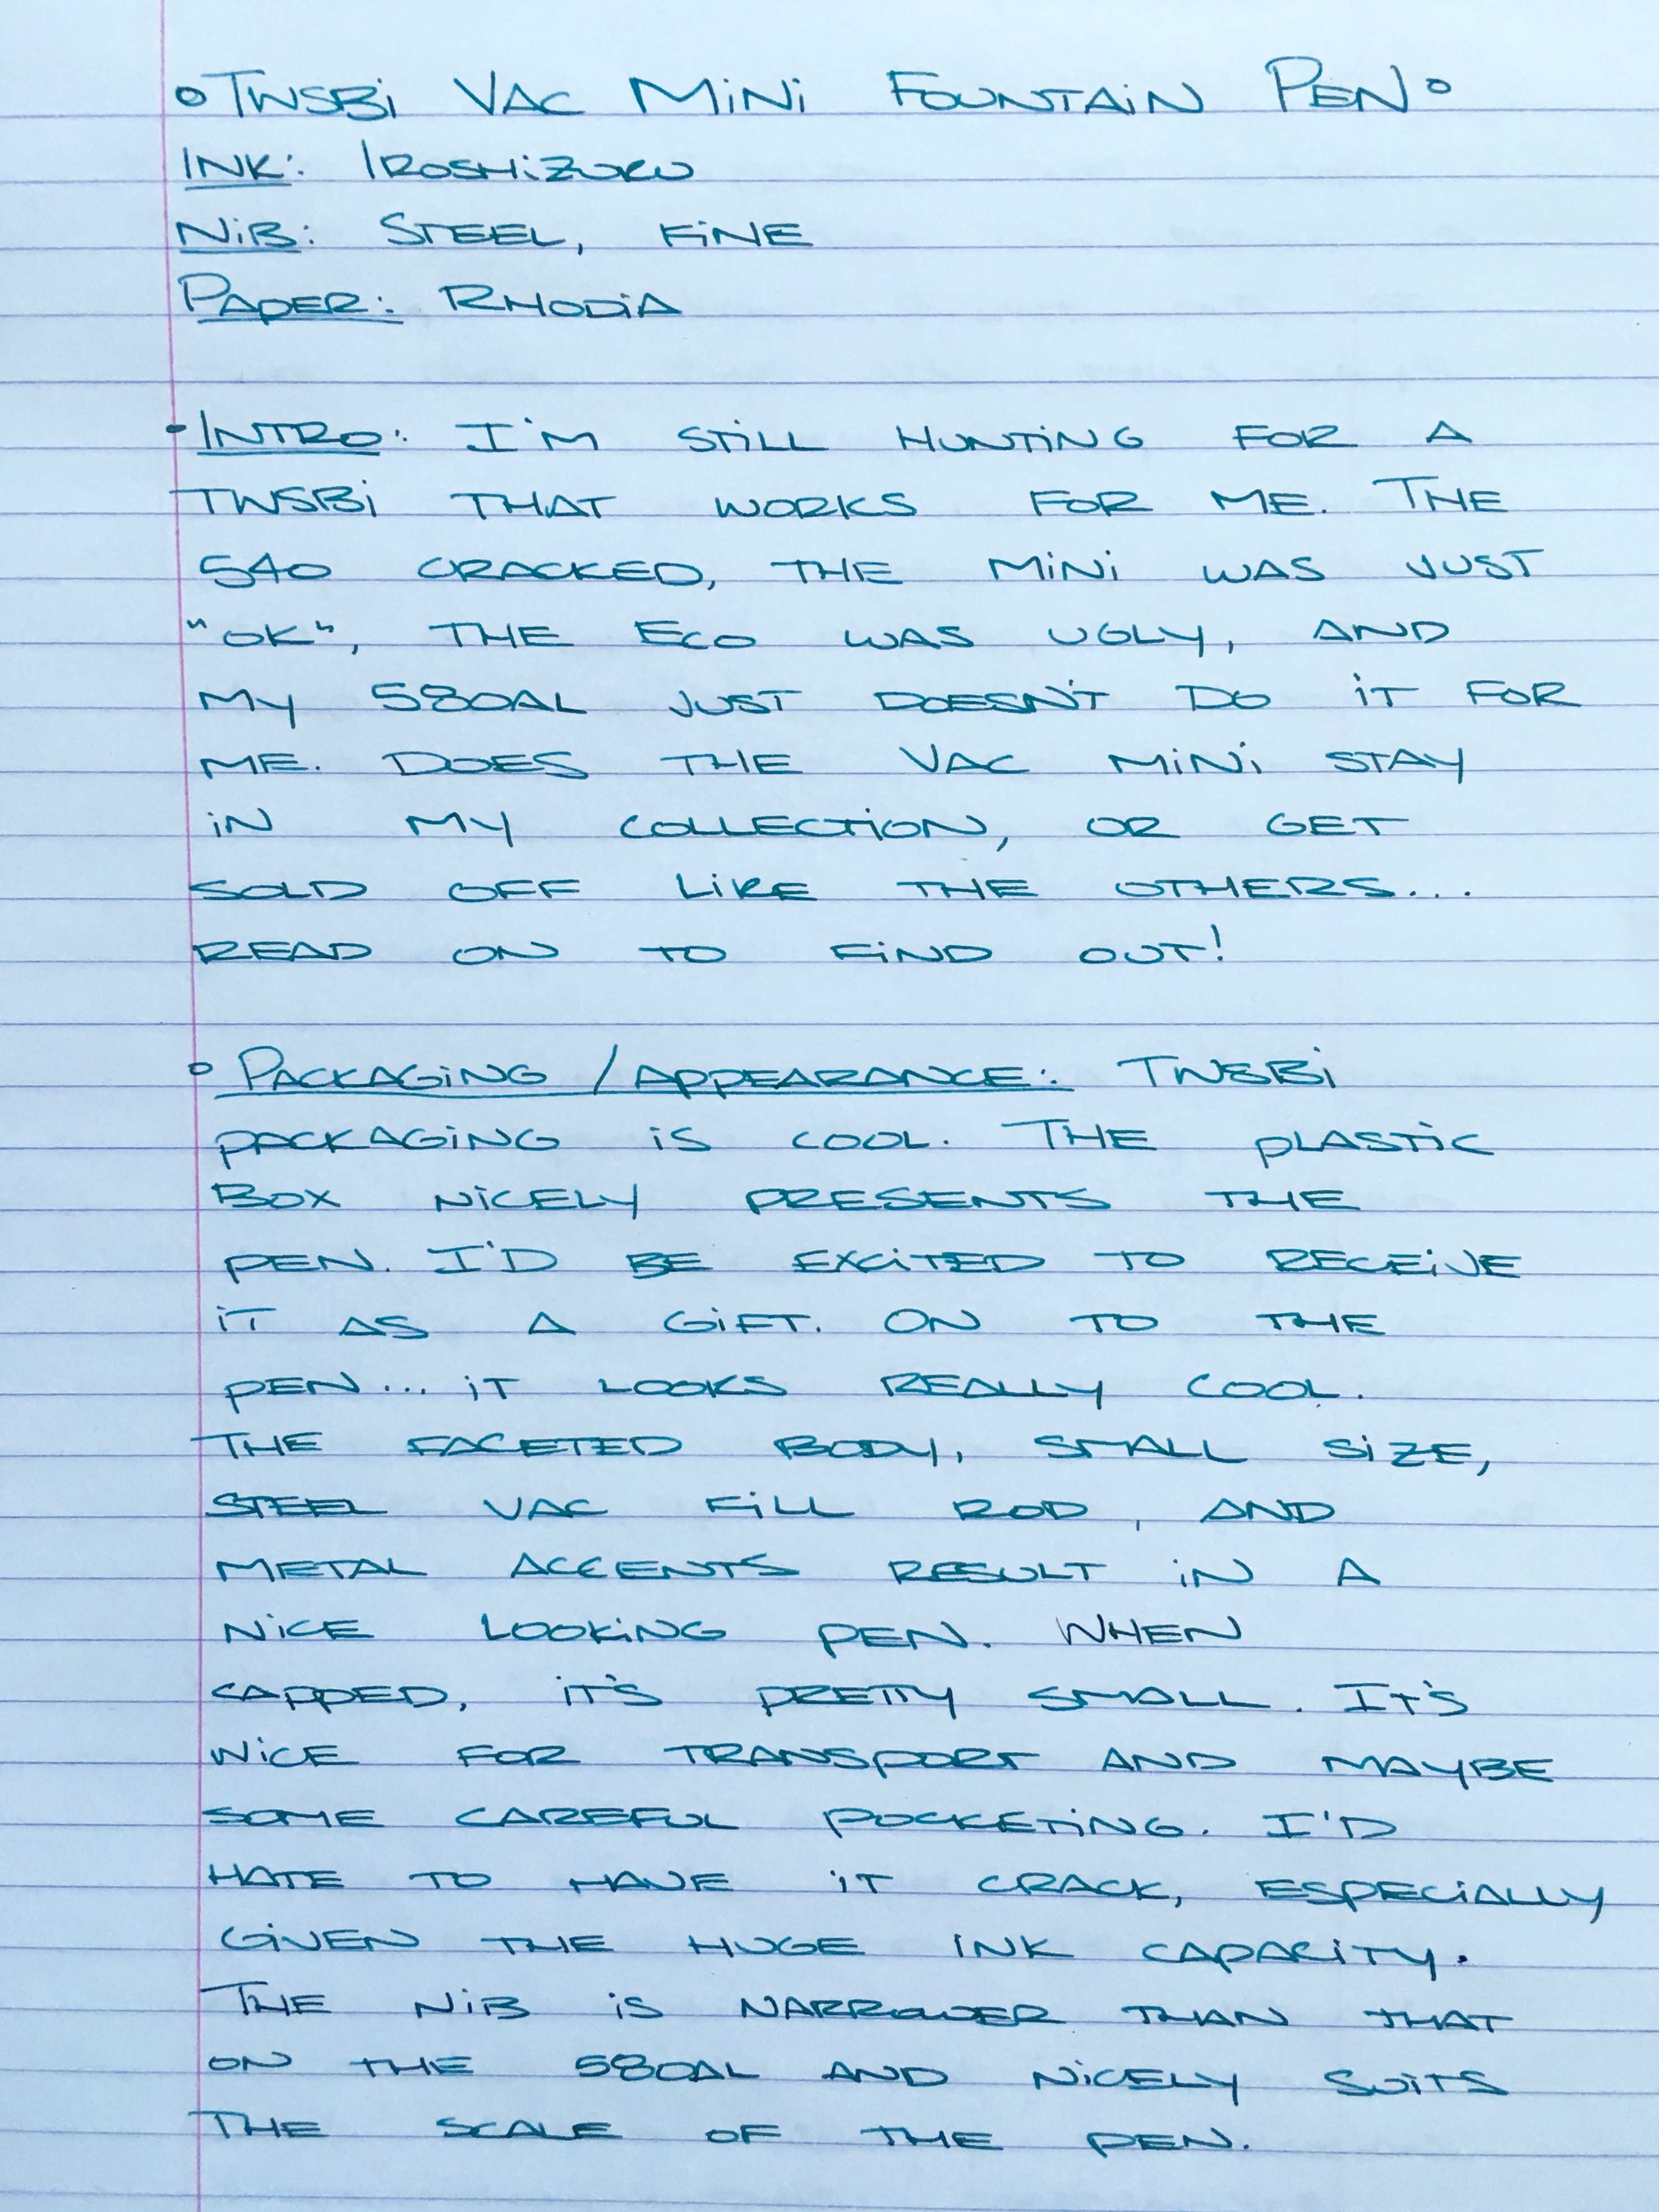 °TWSBi VAC MiNi FOUNTAiN PEN°
INK: IROSHiZUKU
NiB: STEEL, FiNE
PAPER: RHODiA
•INTRO: I'M STiLL HUNTiNG FOR A
TWSBi THAT WORKS FOR ME. THE
540 CRACKED, THE MiNi WAS JUST
"OK", THE ECO WAS UGLY, AND
MY 580AL JUST DOESN'T DO iT FOR
ME. DOES THE VAC MiNi STAY
iN MY COLLECTiON, OR GET
SOLD OFF LiKE THE OTHERS...
READ ON TO FiND OUT!
° PACKAGiNG / APPEARANCE: TWSBi
PACKAGiNG iS COOL. THE PLASTiC
BOX NiCELY PRESENTS THE
PEN. I'D BE EXCiTED TO RECEiVE
iT AS A GiFT. ON TO THE
PEN... iT LOOKS REALLY COOL.
THE FACETED BODY, SMALL SiZE,
STEEL VAC FiLL ROD, AND
METAL ACCENTS RESULT iN A
NiCE LOOKiNG PEN. WHEN
CAPPED, iT'S PRETTY SMALL. IT'S
NiCE FOR TRANSPORT AND MAYBE
SOME CAREFUL POCKETiNG. I'D
HATE TO HAVE iT CRACK, ESPECiALLY
GiVEN THE HUGE iNK CAPACiTY.
THE NiB iS NARROWER THAN THAT
ON THE 580AL AND NiCELY SUiTS
THE SCALE OF THE PEN.